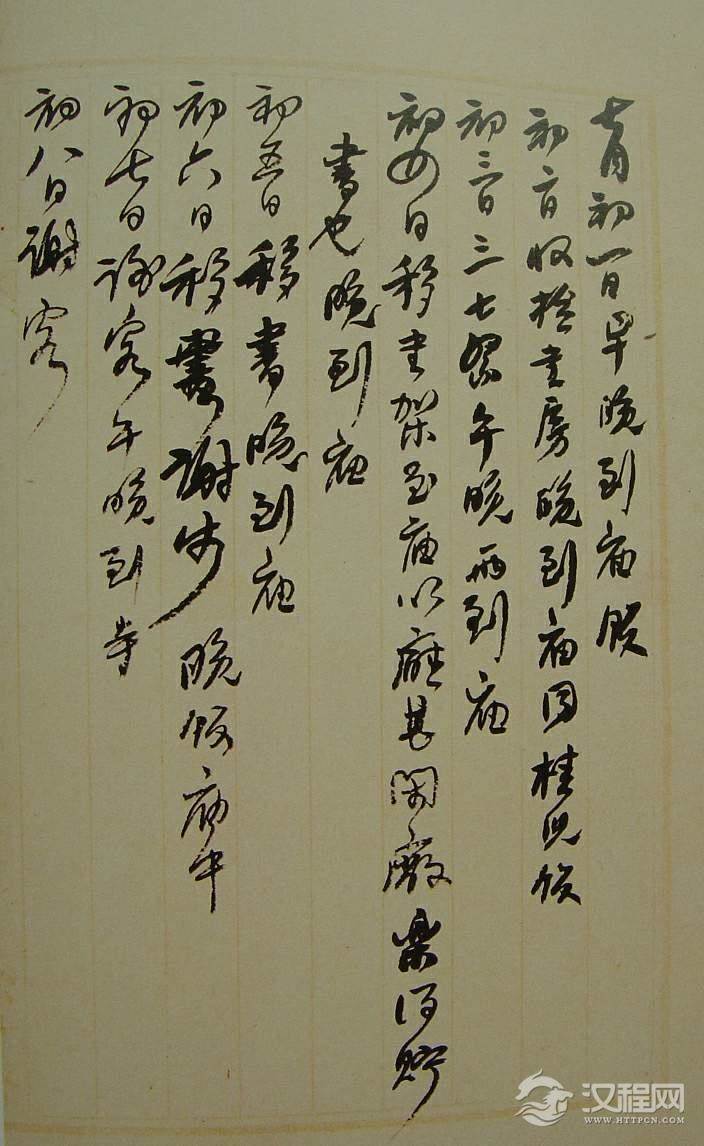 七月初一日早晚到庙 饭
初二日收捡书房晚到庙同桂儿饭
初三日三七祭午晚两到庙
初四日移书架至庙以庭甚闲敞乐得贮
书也晚到庙
初五日移书晚到庙
初六日移书谢步晚饭庙中
初七日谢客午晚到寺
初八日谢客
汉程网
WWW.HTTPCN.COM